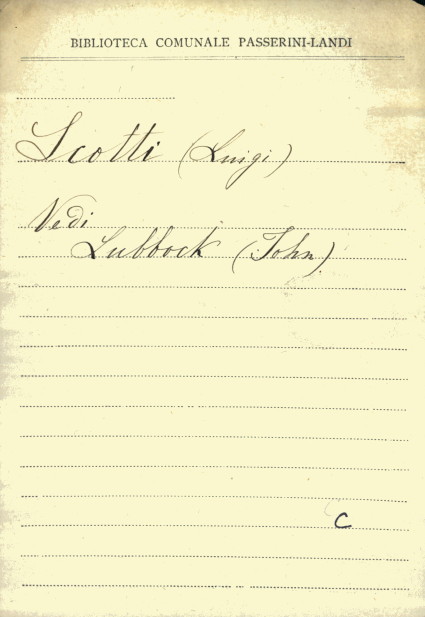 BIBLIOTECA COMUNALE PASSERINI-LANDI
Scotti (Luigi)
Vedi
Lubbock (John).
C